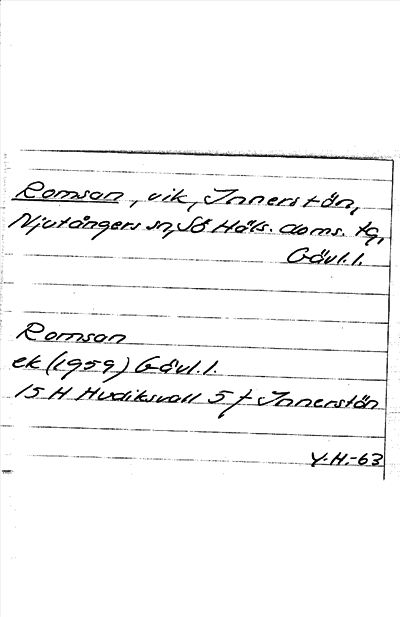 Romsan, vik, Innerstön,
Njutångers sn, SÖ Häls. doms. tg,
Gävl. l.
Romsan
ek (1959) Gävl. l.
15 H Hudiksvall 5 f Innerstön
Y.H.-63